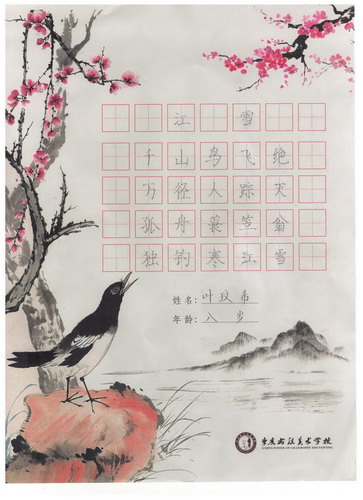 江雪
千山鸟飞绝
万径人踪灭
孤舟蓑笠翁
独钓寒江雪
姓名：叶玟希
年龄：八岁
重庆书法美术学校